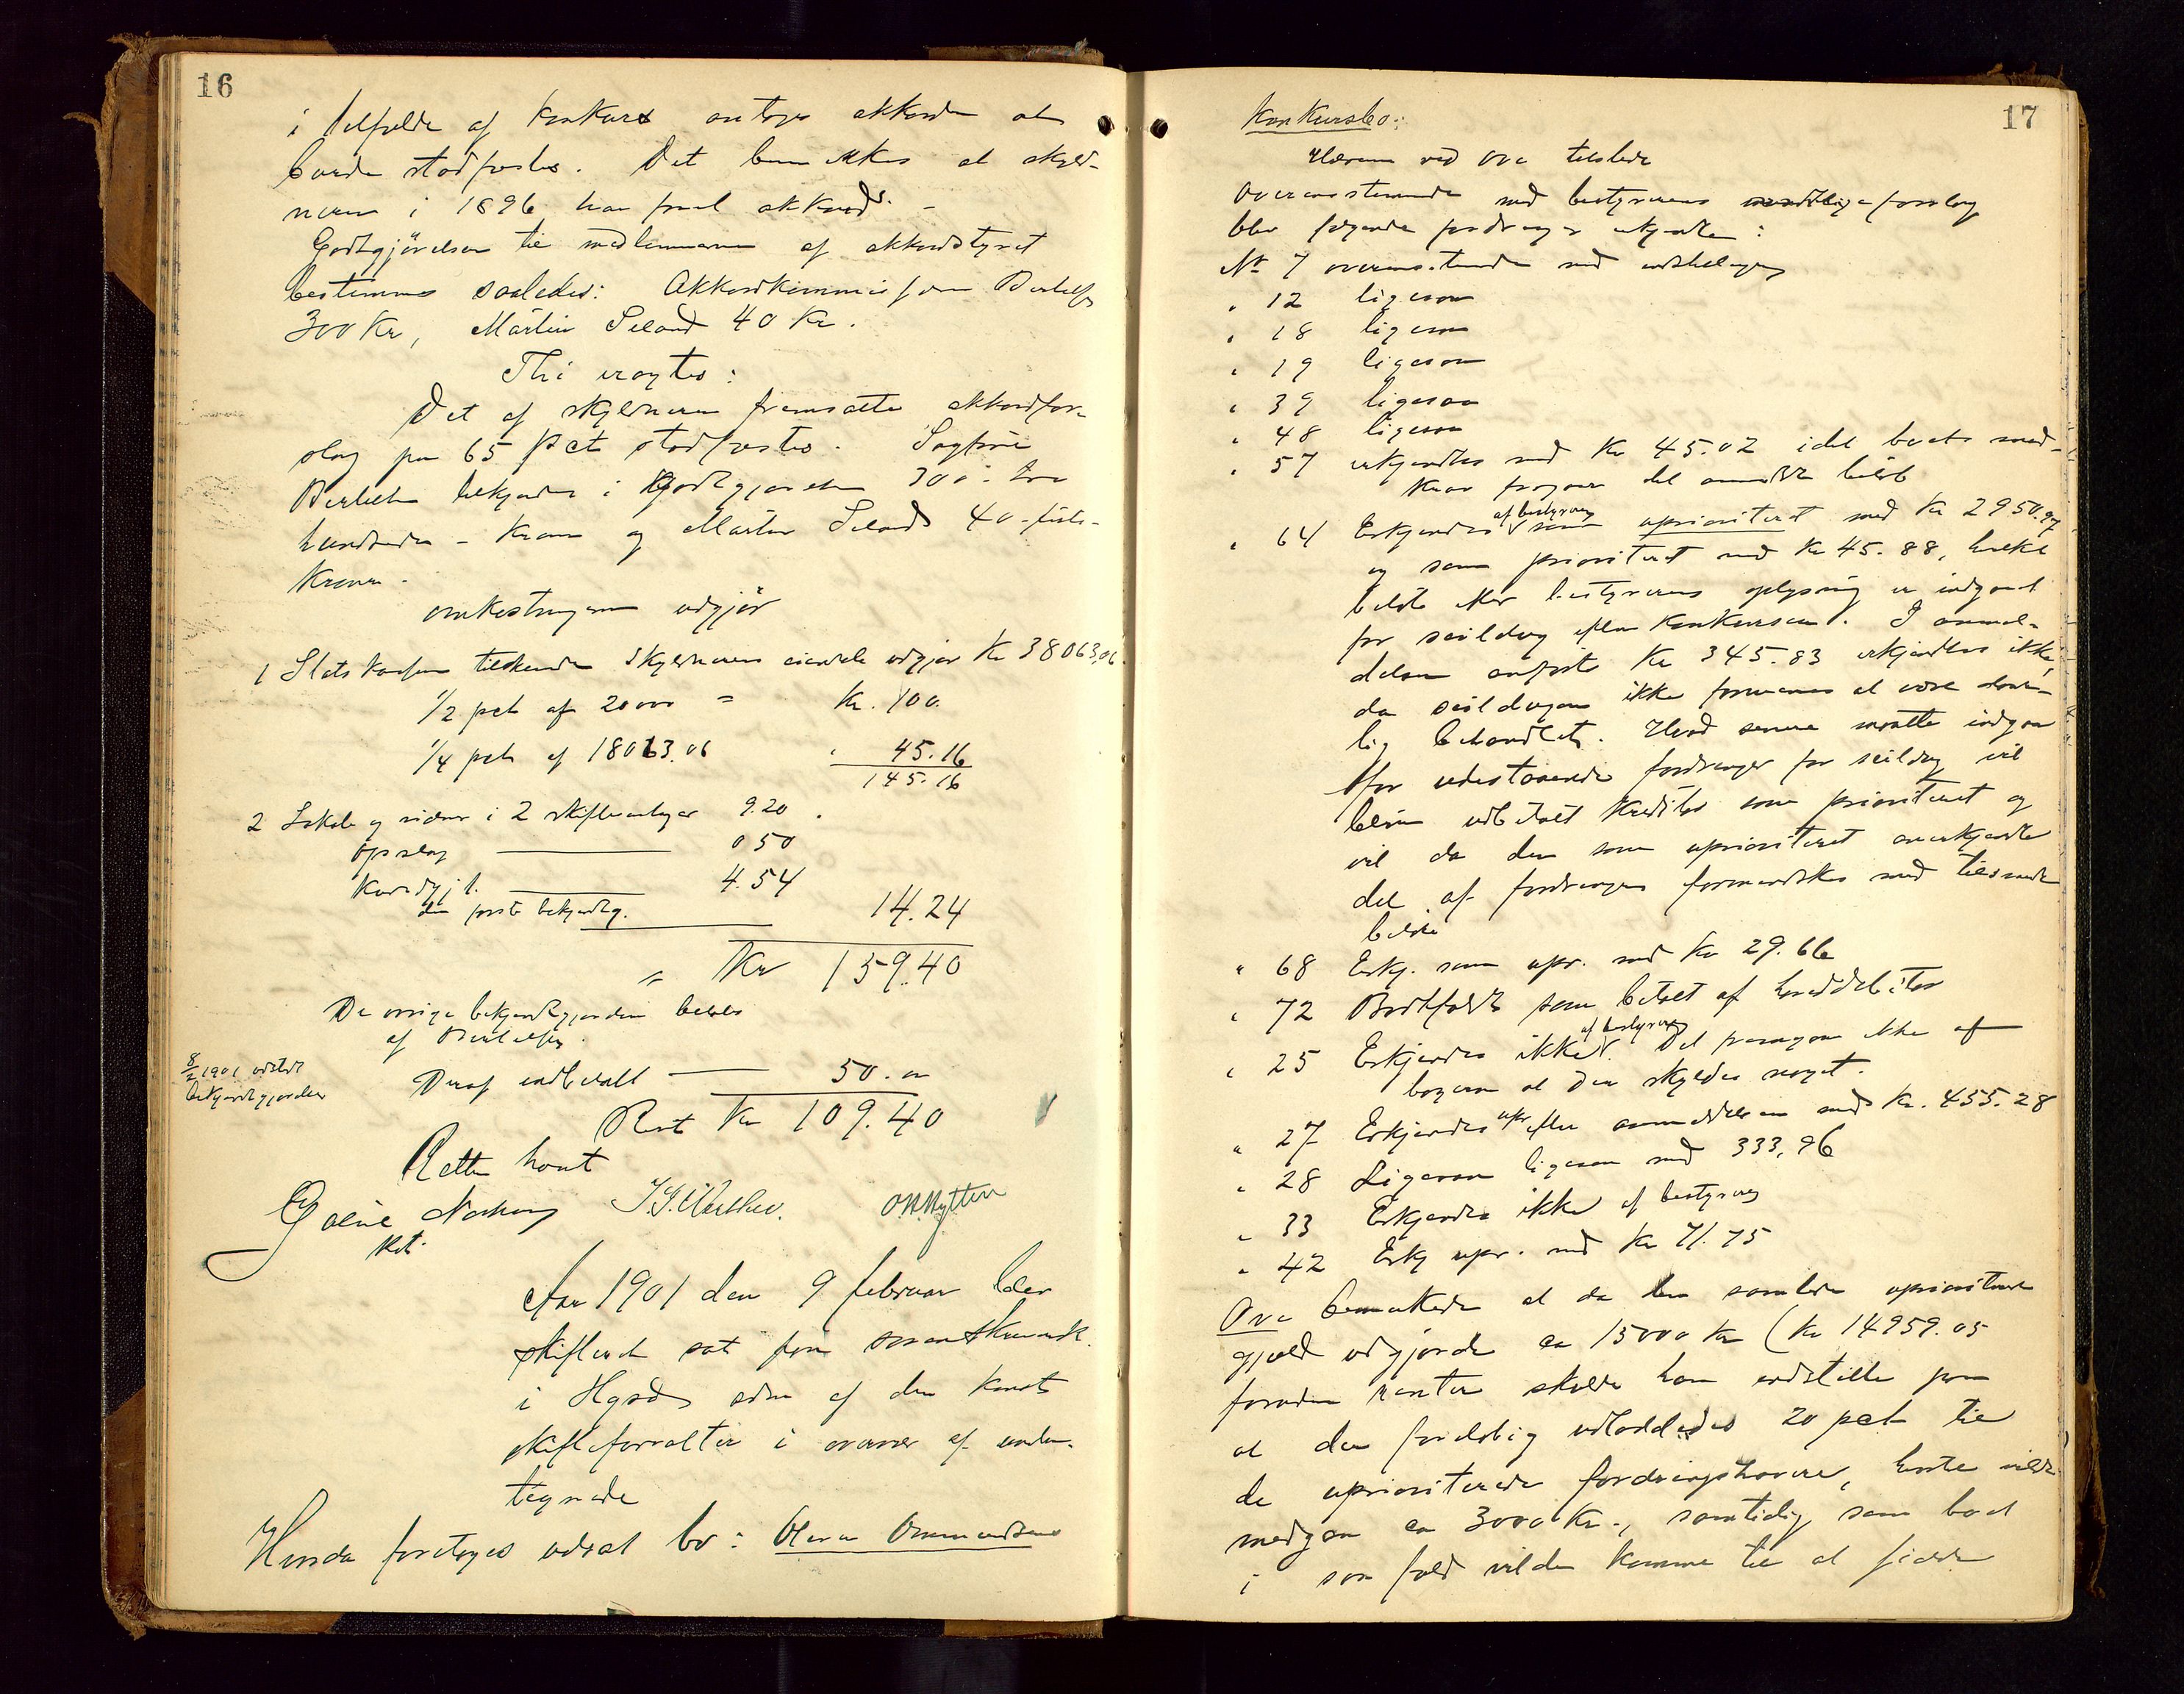 16
i tilfælde af konkurs antages akkorden at
burde stadfæstes. Det bemærkes at skyld-
neren i 1896 har faaet akkord. -
Godtgjörelsen til medlemmerne af akkordstyret
bestemmes saaledes: Akkordkommissær Bertelsen
300 Kr, Martin Seland 40 Kr.
Thi eragtes:
Det af skyldneren fremsatte akkordfor-
slag paa 65 pct stadfæstes. Sagfører
Bertelsen tilkjendes i Godtgjørelse 300 - tre
hundrede - Kroner og Martin Seland 40 - firti -
Kroner.
omkostningerne udgjør
1 Statskassen tilkommer Skyldnerens eiendele udgjør Kr 38063,06
1/2 pct af 20000 = Kr. 100.
1/4 pct af 18063.06 " 45.16
145.16
2 Lokale og vidner i 2 skiftesamlinger 9.20
opslag 0 50
Kundgj.
den første bekjendtg. 4.54
14.24
" Kr 159.40
De øvrige bekjendtgjørelser betales
af Bertelsen.
8/2 1901 udstedt
bekjendtgjørelser
Deraf indbetalt 50. "
Rest Kr 109.40
Retten hævet
OKNytten
Aar 1901 den 9 februar blev
skifteret sat paa sorenskriverk.
i Hgsd adm af den konst
skifteforvalter i overvær af under-
tegnede
Hvorda foretoges udeat bo: Ommundsens
17
Konkursbo:
Hervem ved Ove tilstede
Overensstemmende med bestyrerens mundtlige forslag
blev følgende fordringer erkjendte:
No 7 overensstemmende med indstillingen
" 12 ligesaa
" 18 ligesaa
" 19 ligesaa
" 39 ligesaa
" 48 ligesaa
" 57 erkjendtes med Kr 45.02 idet boets mod-
krav fragaar det anmeldte beløb
" 64 Erkjendes af bestyreren som uprioriteret med Kr 2950.97
og som prioriteret med Kr 45.88, hvilket
beløb efter bestyrerens oplysning er indgaaet
for seildug efter konkursen. I anmel-
delsen anførte Kr 345.83 erkjendtes ikke,
da seildugen ikke formenes at være 
lig behandlet. Hvad senere maatte indgaa
for udestaaende fordringer for seildug vil
blive udbetalt Kreditor som prioriteret og
vil da den som uprioriteret anerkjendte
del af fordringen formindskes med tilsvarende
beløb
" 68 Erkj. som upr. med Kr 29.66
" 72 Bortfaldt som betalt af hoveddebitor
" 25 Erkjendes ikke af bestyreren. Det fremgaar ikke af
bøgerne at der skyldes noget.
" 27 Erkjendes upr efter anmeldelsen med Kr. 455.28
" 28 Ligesaa ligesaa med 333,96
" 33 Erkjendes ikke af bestyreren
" 42 Erkj upr. med Kr 71.75
Ove bemærkede at da den samlede uprioriterede
gjæld udgjorde ca 15000 Kr (Kr 14959.05
foruden renter skulde han indstille paa
at der foreløbig udloddedes 20 pct til
de uprioriterede fordringshavere, hvortil vilde
medgaa ca 3000 Kr., samtidig som boet
i saa fald vilde komme til at